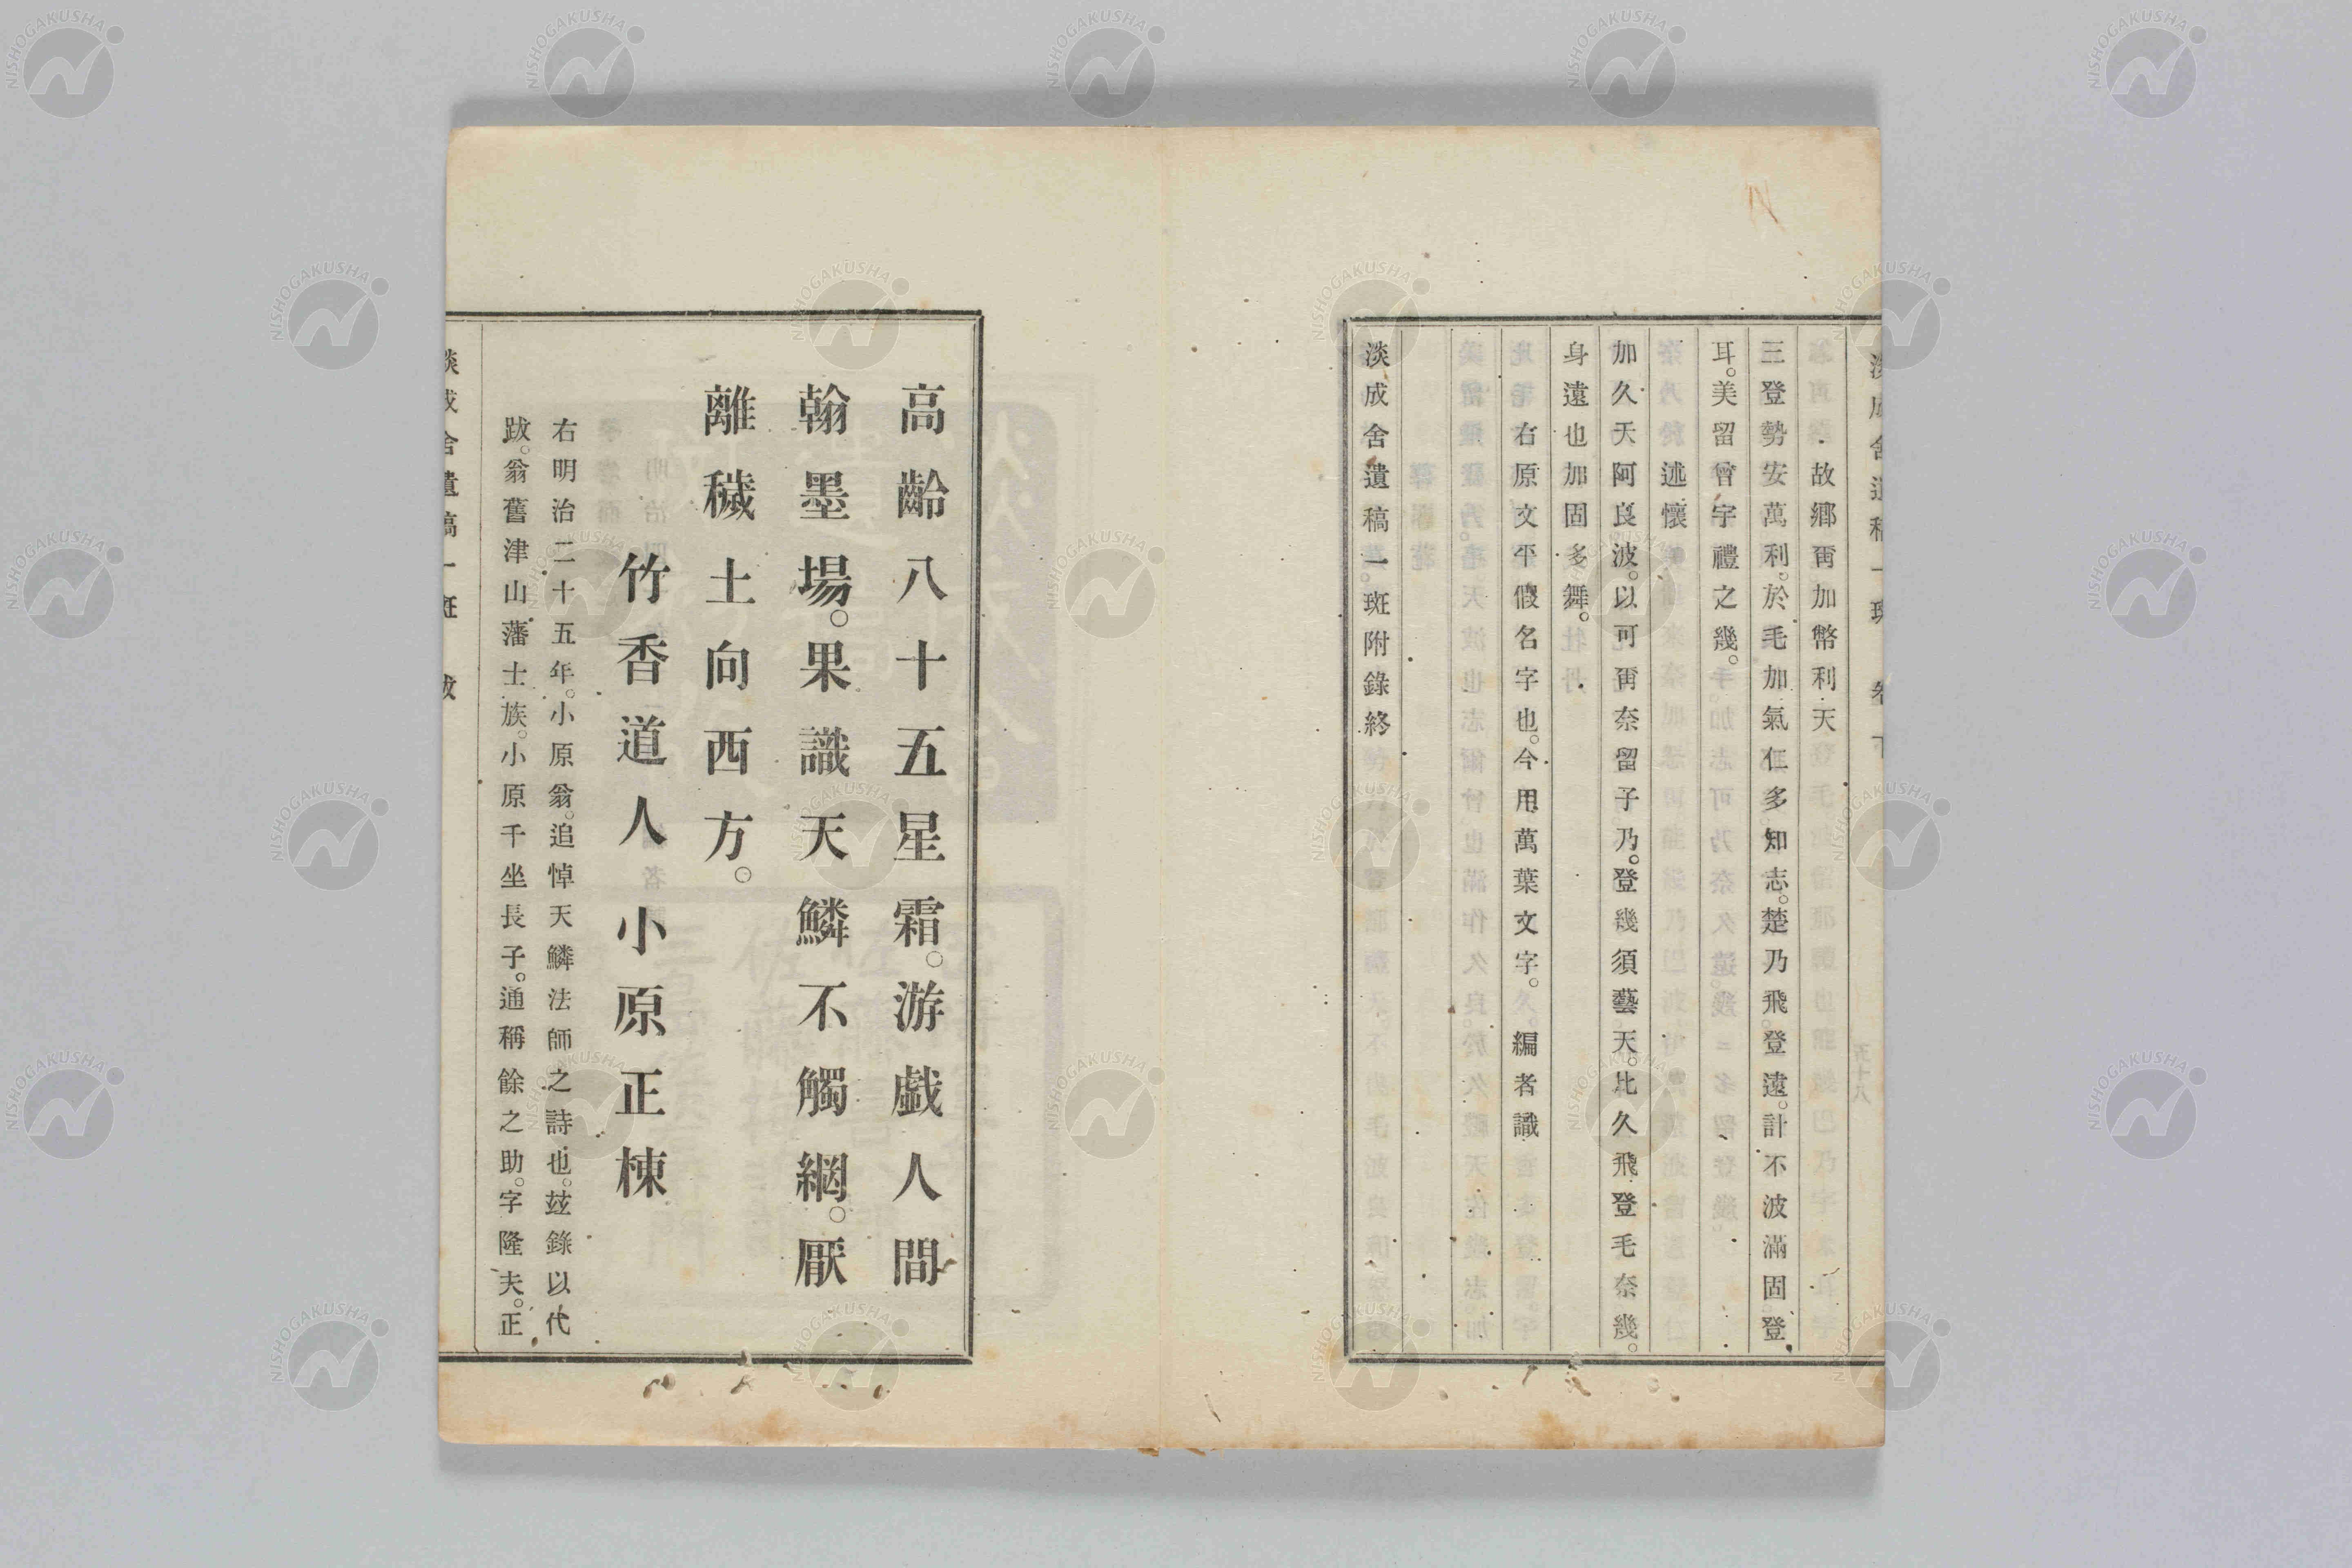 故鄕爾加幣利天
三登勢安萬利。於毛加氣仁多知志。楚乃飛登遠。計不波滿固登
耳。美留曾宇禮之幾。
述懷
加久天阿良波。以可爾奈留子乃。登幾須藝天。比久飛登毛奈幾。
身遠也加固多舞。
右原文平假名字也。今用萬葉文字。 編者識
淡成舍遺稿一斑附錄終
高齡八十五星霜。游戲人間
翰墨場。果識天鱗不觸網。厭
離穢土向西方。
竹香道人 小原正棟
右明治二十五年。小原翁。追悼天鱗法師之詩也。玆錄以代
跋。翁舊津山藩士族。小原千坐長子。通稱餘之助。字隆夫。正
淡成舍遺稿一斑 跋
NISHOGAKUSHA